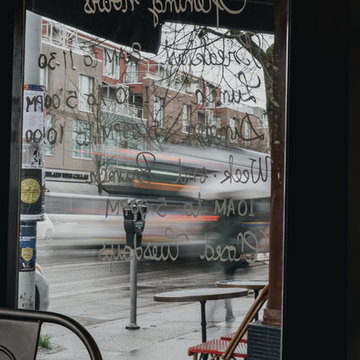 Opening Hours
Breakfast 8AM to 11:30
Lunch 11:30 to 5:00PM
Dinner 5:00PM to 10:00
Week-end Brunch
10AM to 5:00PM
Closed Tuesdays